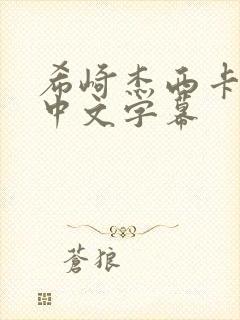 希崎杰西卡
中文字幕
蒼狼